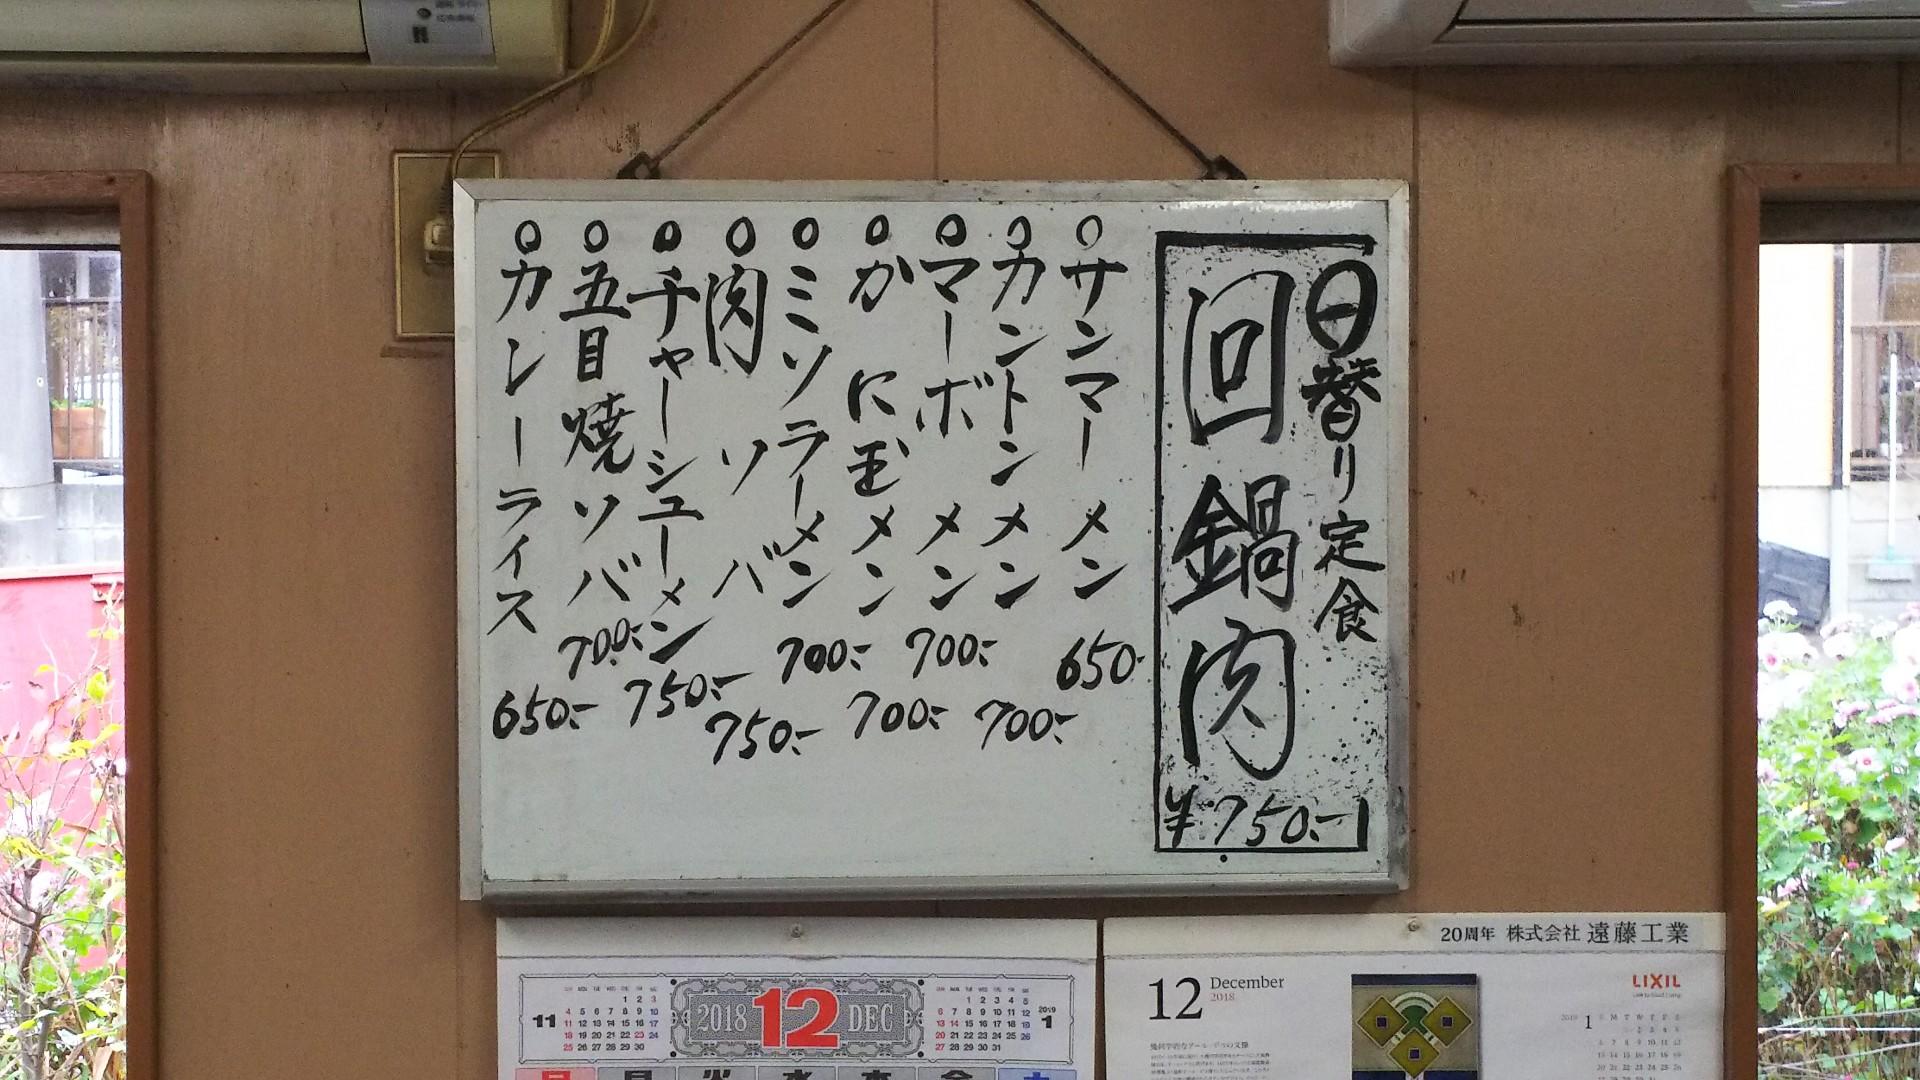 日替り定食
回鍋肉
¥750.-
サンマーメン 650.-
カントンメン 700.-
マーボメン 700.-
かに玉メン 700.-
ミソラーメン 700.-
肉ソバ 750.-
チャーシューメン 750.-
五目焼ソバ 700.-
カレーライス 650.-
20周年 株式会社 遠藤工業
11
2018 12 DEC
2019
1
12 December
2018
LIXIL
2019 1
幾何学的なアール・デコの文様